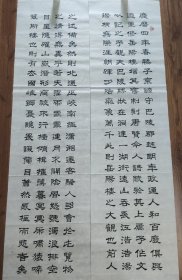 慶曆四年春滕子京謫守巴陵郡越明年政通人和百廢俱興
乃重修岳陽樓增其舊制刻唐賢今人詩賦於其上屬予作文
以記之予觀夫巴陵勝狀在洞庭一湖銜遠山吞長江浩浩湯
湯橫無際涯朝暉夕陰氣象萬千此則岳陽樓之大觀也前人
之述備矣然則北通巫峽南極瀟湘遷客騷人多會於此覽物
之情得無異乎若夫霪雨霏霏連月不開陰風怒號濁浪排空
日星隱耀山岳潛形商旅不行檣傾楫摧薄暮冥冥虎嘯猿啼
登斯樓也則有去國懷鄉憂讒畏譏滿目蕭然感極而悲者矣